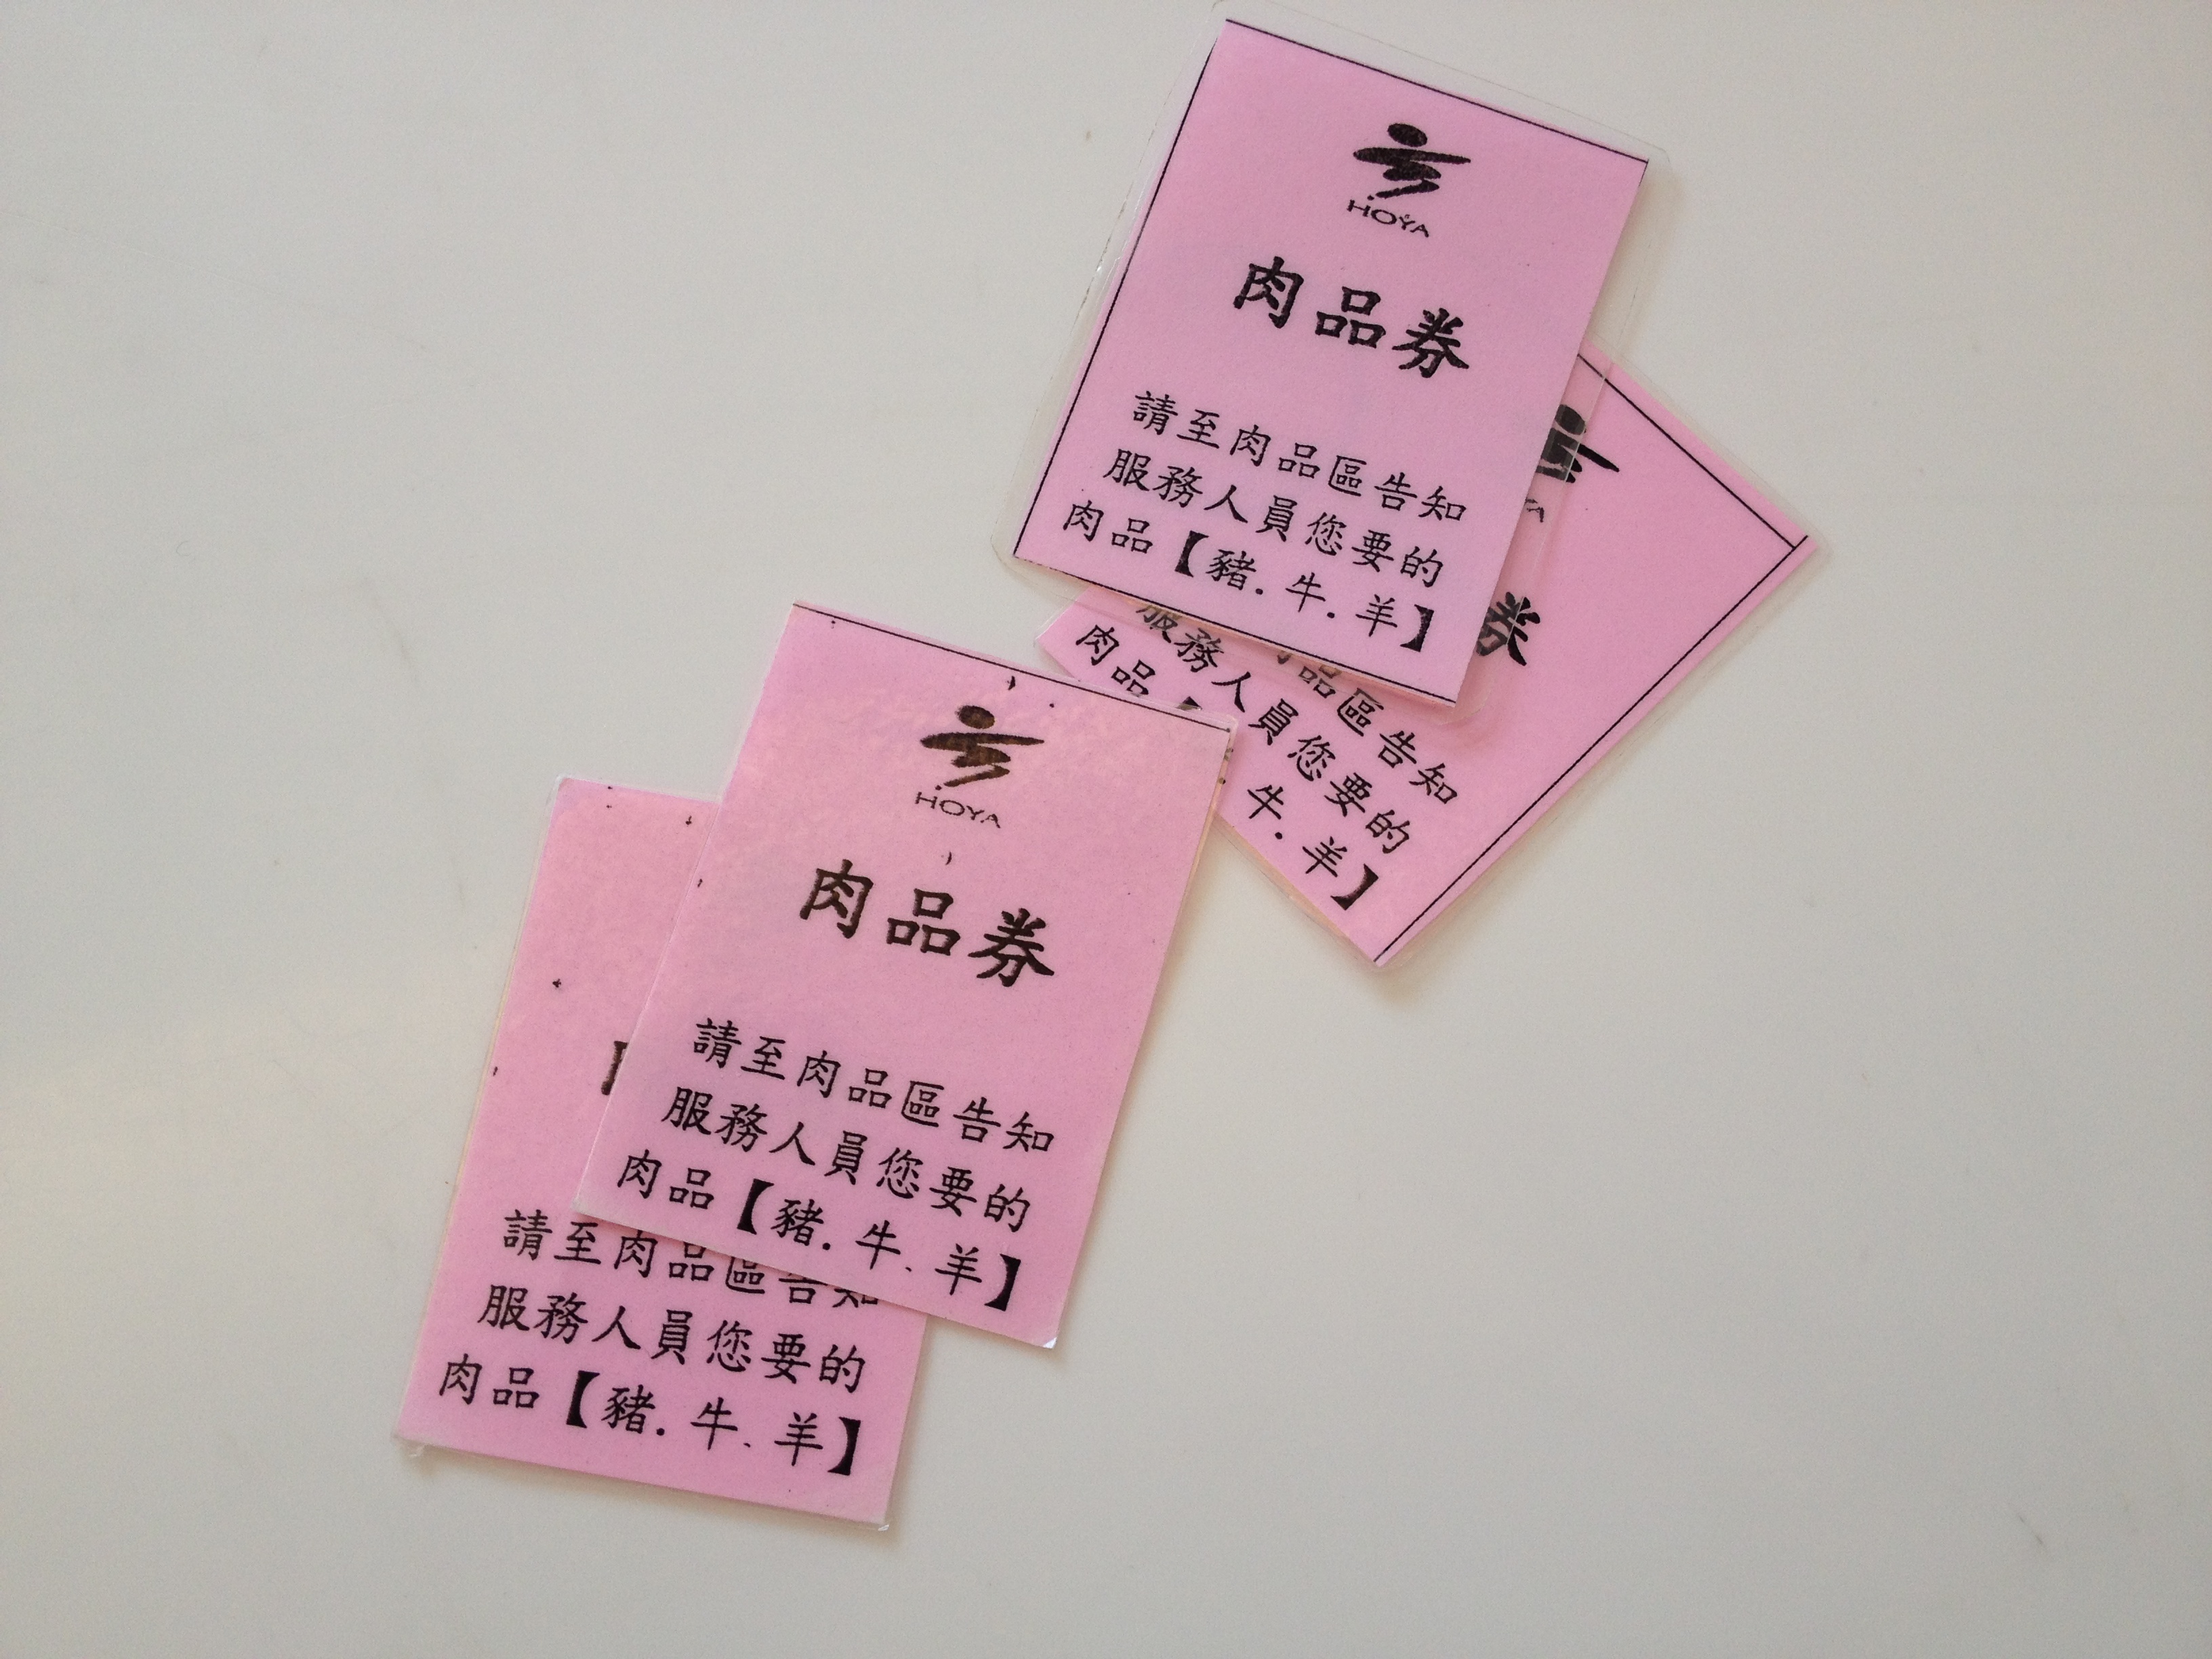 HOYA
肉品券
請至肉品區告知
服務人員您要的
肉品【豬.牛.羊】
券
服務人員您要的
品區告知
肉品【
牛.羊】
HOYA
肉品券
請至肉品區告知
服務人員您要的
肉品【豬.牛.羊】
請至肉品區告知
服務人員您要的
肉品【豬.牛.羊】